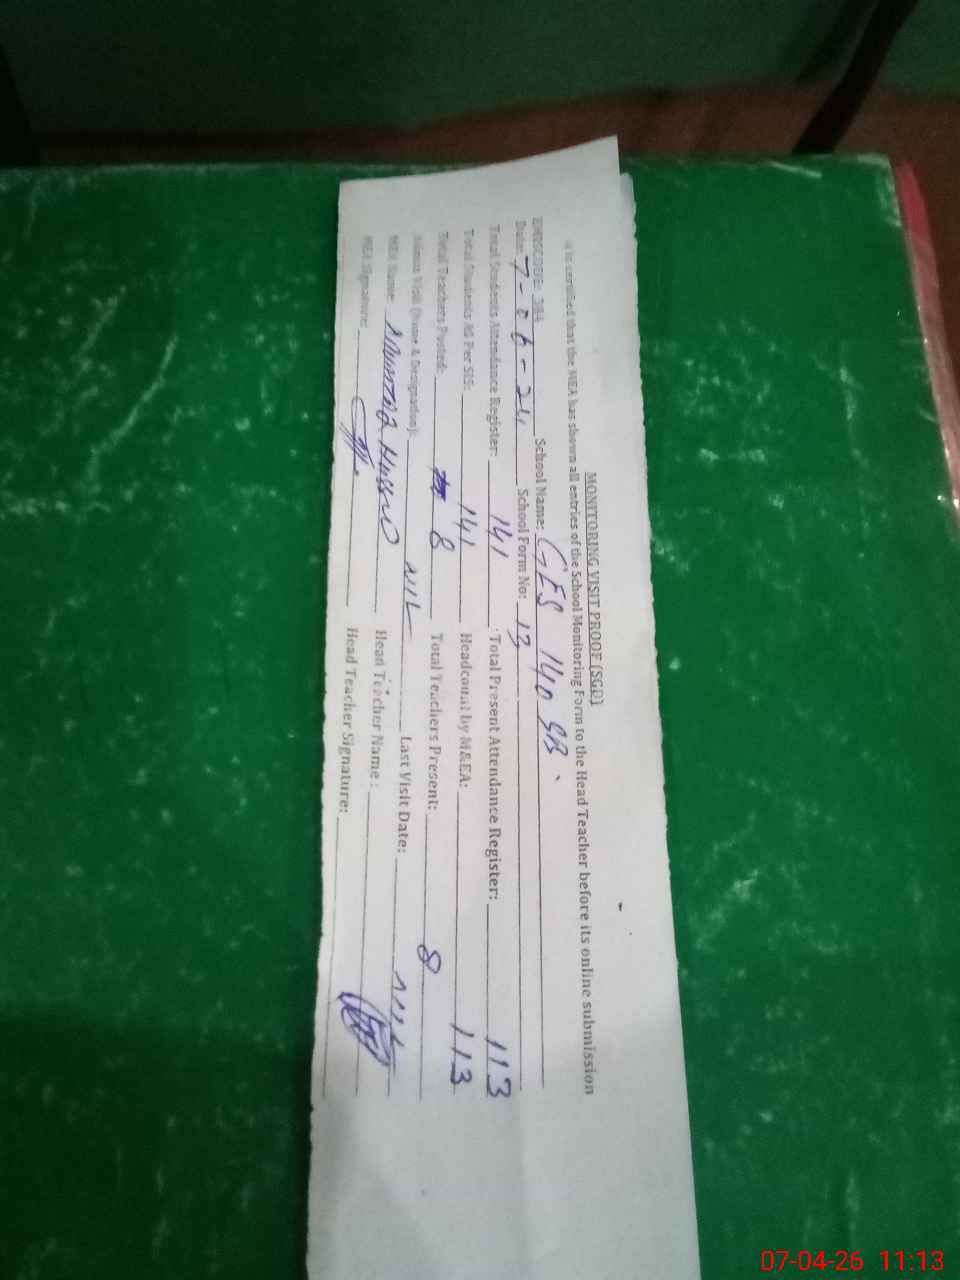 MONITORING VISIT PROOF (SGD)
It is certified that the MEA has shown all entries of the School Monitoring Form to the Head Teacher before its online submission
School Name: GES 140 GB.
Date: 7-06-24 School Form No: 13
Total Students Attendance Register: 141 Total Present Attendance Register: 113
Total Students AS Per SIS: 141 Headcount by M&EA: 113
Total Teachers Posted: 8 Total Teachers Present: 8
Admin Visit (Name & Designation): NIL Last Visit Date: NIL
MEA Name: Head Teacher Name:
MEA Signature: Head Teacher Signature:
07-04-26 11:13